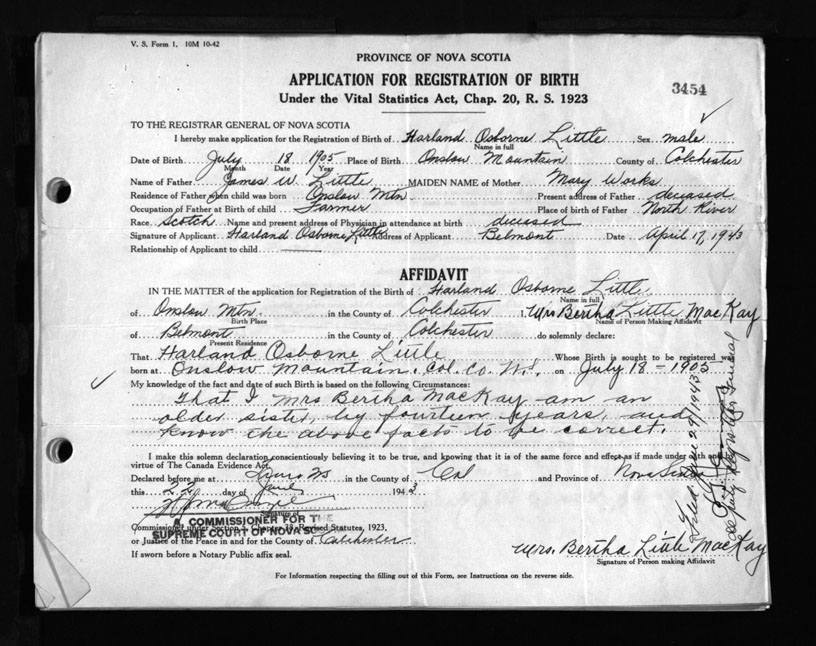 V. S. Form 1. 10M 10-42
PROVINCE OF NOVA SCOTIA
APPLICATION FOR REGISTRATION OF BIRTH
3454
Under the Vital Statistics Act, Chap. 20, R. S. 1923
TO THE REGISTRAR GENERAL OF NOVA SCOTIA
I hereby make application for the Registration of Birth of Harland Osborne Little Sex male
Name in full
Date of Birth July 18 1905 Place of Birth Onslow Mountain County of Colchester
Month Date Year
Name of Father James W. Little MAIDEN NAME of Mother Mary Works
Residence of Father when child was born Onslow Mtn Present address of Father deceased
Occupation of Father at Birth of child Farmer Place of birth of Father North River
Race Scotch Name and present address of Physician in attendance at birth deceased
Signature of Applicant Harland Osborne Little Address of Applicant Belmont Date April 17, 1943
Relationship of Applicant to child
AFFIDAVIT
IN THE MATTER of the application for Registration of the Birth of Harland Osborne Little
Name in full
of Onslow Mtn. in the County of Colchester I, Mrs Bertha Little MacKay
Birth Place Name of Person Making Affidavit
of Belmont in the County of Colchester do solemnly declare:
Present Residence
That Harland Osborne Little Whose Birth is sought to be registered was
born at Onslow Mountain, Col. Co. N.S. on July 18-1905
My knowledge of the fact and date of such Birth is based on the following Circumstances:
That I Mrs Bertha MacKay am an
older sister, by fourteen years, and
know the above facts to be correct.
I make this solemn declaration conscientiously believing it to be true, and knowing that it is of the same force and effect as if made under oath and
virtue of The Canada Evidence Act.
Declared before me at Truro NS in the County of Col and Province of Nova Scotia
this 22 day of June 1943
Signature of
Commissioner under Section Chapter Revised Statutes, 1923,
A COMMISSIONER FOR THE
SUPREME COURT OF NOVA SC
or Justice of the Peace in and for the County of Colchester
If sworn before a Notary Public affix seal.
Mrs. Bertha Little MacKay
Signature of Person making Affidavit
For Information respecting the filling out of this Form, see Instructions on the reverse side.
Filed June 29/1943
Deputy Registrar General